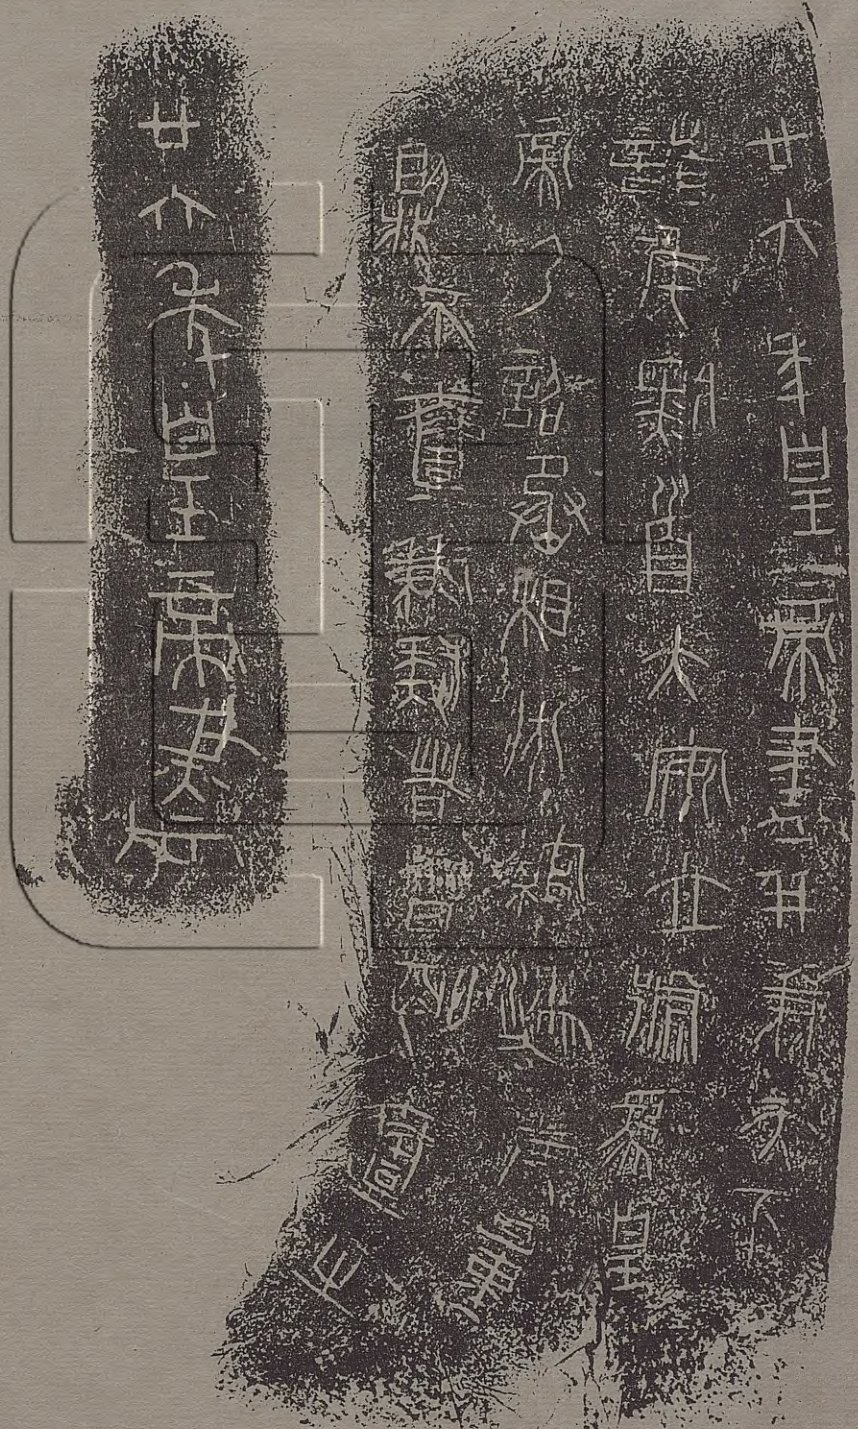 廿六年皇帝盡并兼天下
諸侯黔首大安立號為皇
帝乃詔丞相狀綰灋度量
則不壹歉疑者皆明壹之
廿六年皇帝盡